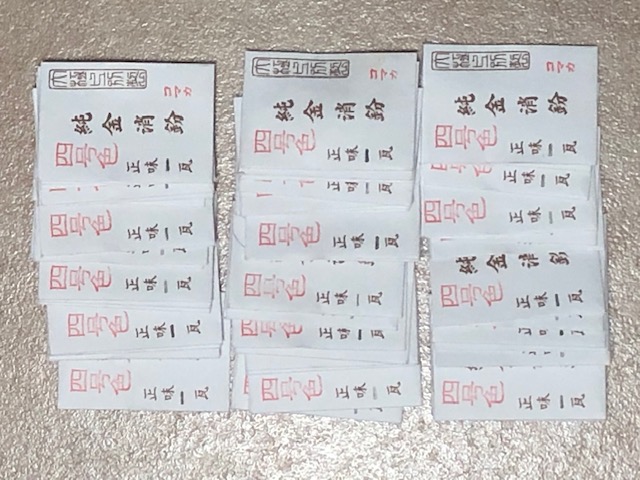 コマカ
純金消粉
四号色
正味一瓦
四号色
正味一瓦
四号色
正味一瓦
四号色
正味一瓦
四号色
正味一瓦
コマカ
純金消粉
四号色
正味一瓦
正味一瓦
四号色
正味一瓦
四号色
正味一瓦
四号色
正味一瓦
四号色
正味一瓦
コマカ
純金消粉
四号色
正味一瓦
正味一瓦
四号色
正味一瓦
純金消粉
四号色
正味一瓦
四号色
正味一瓦